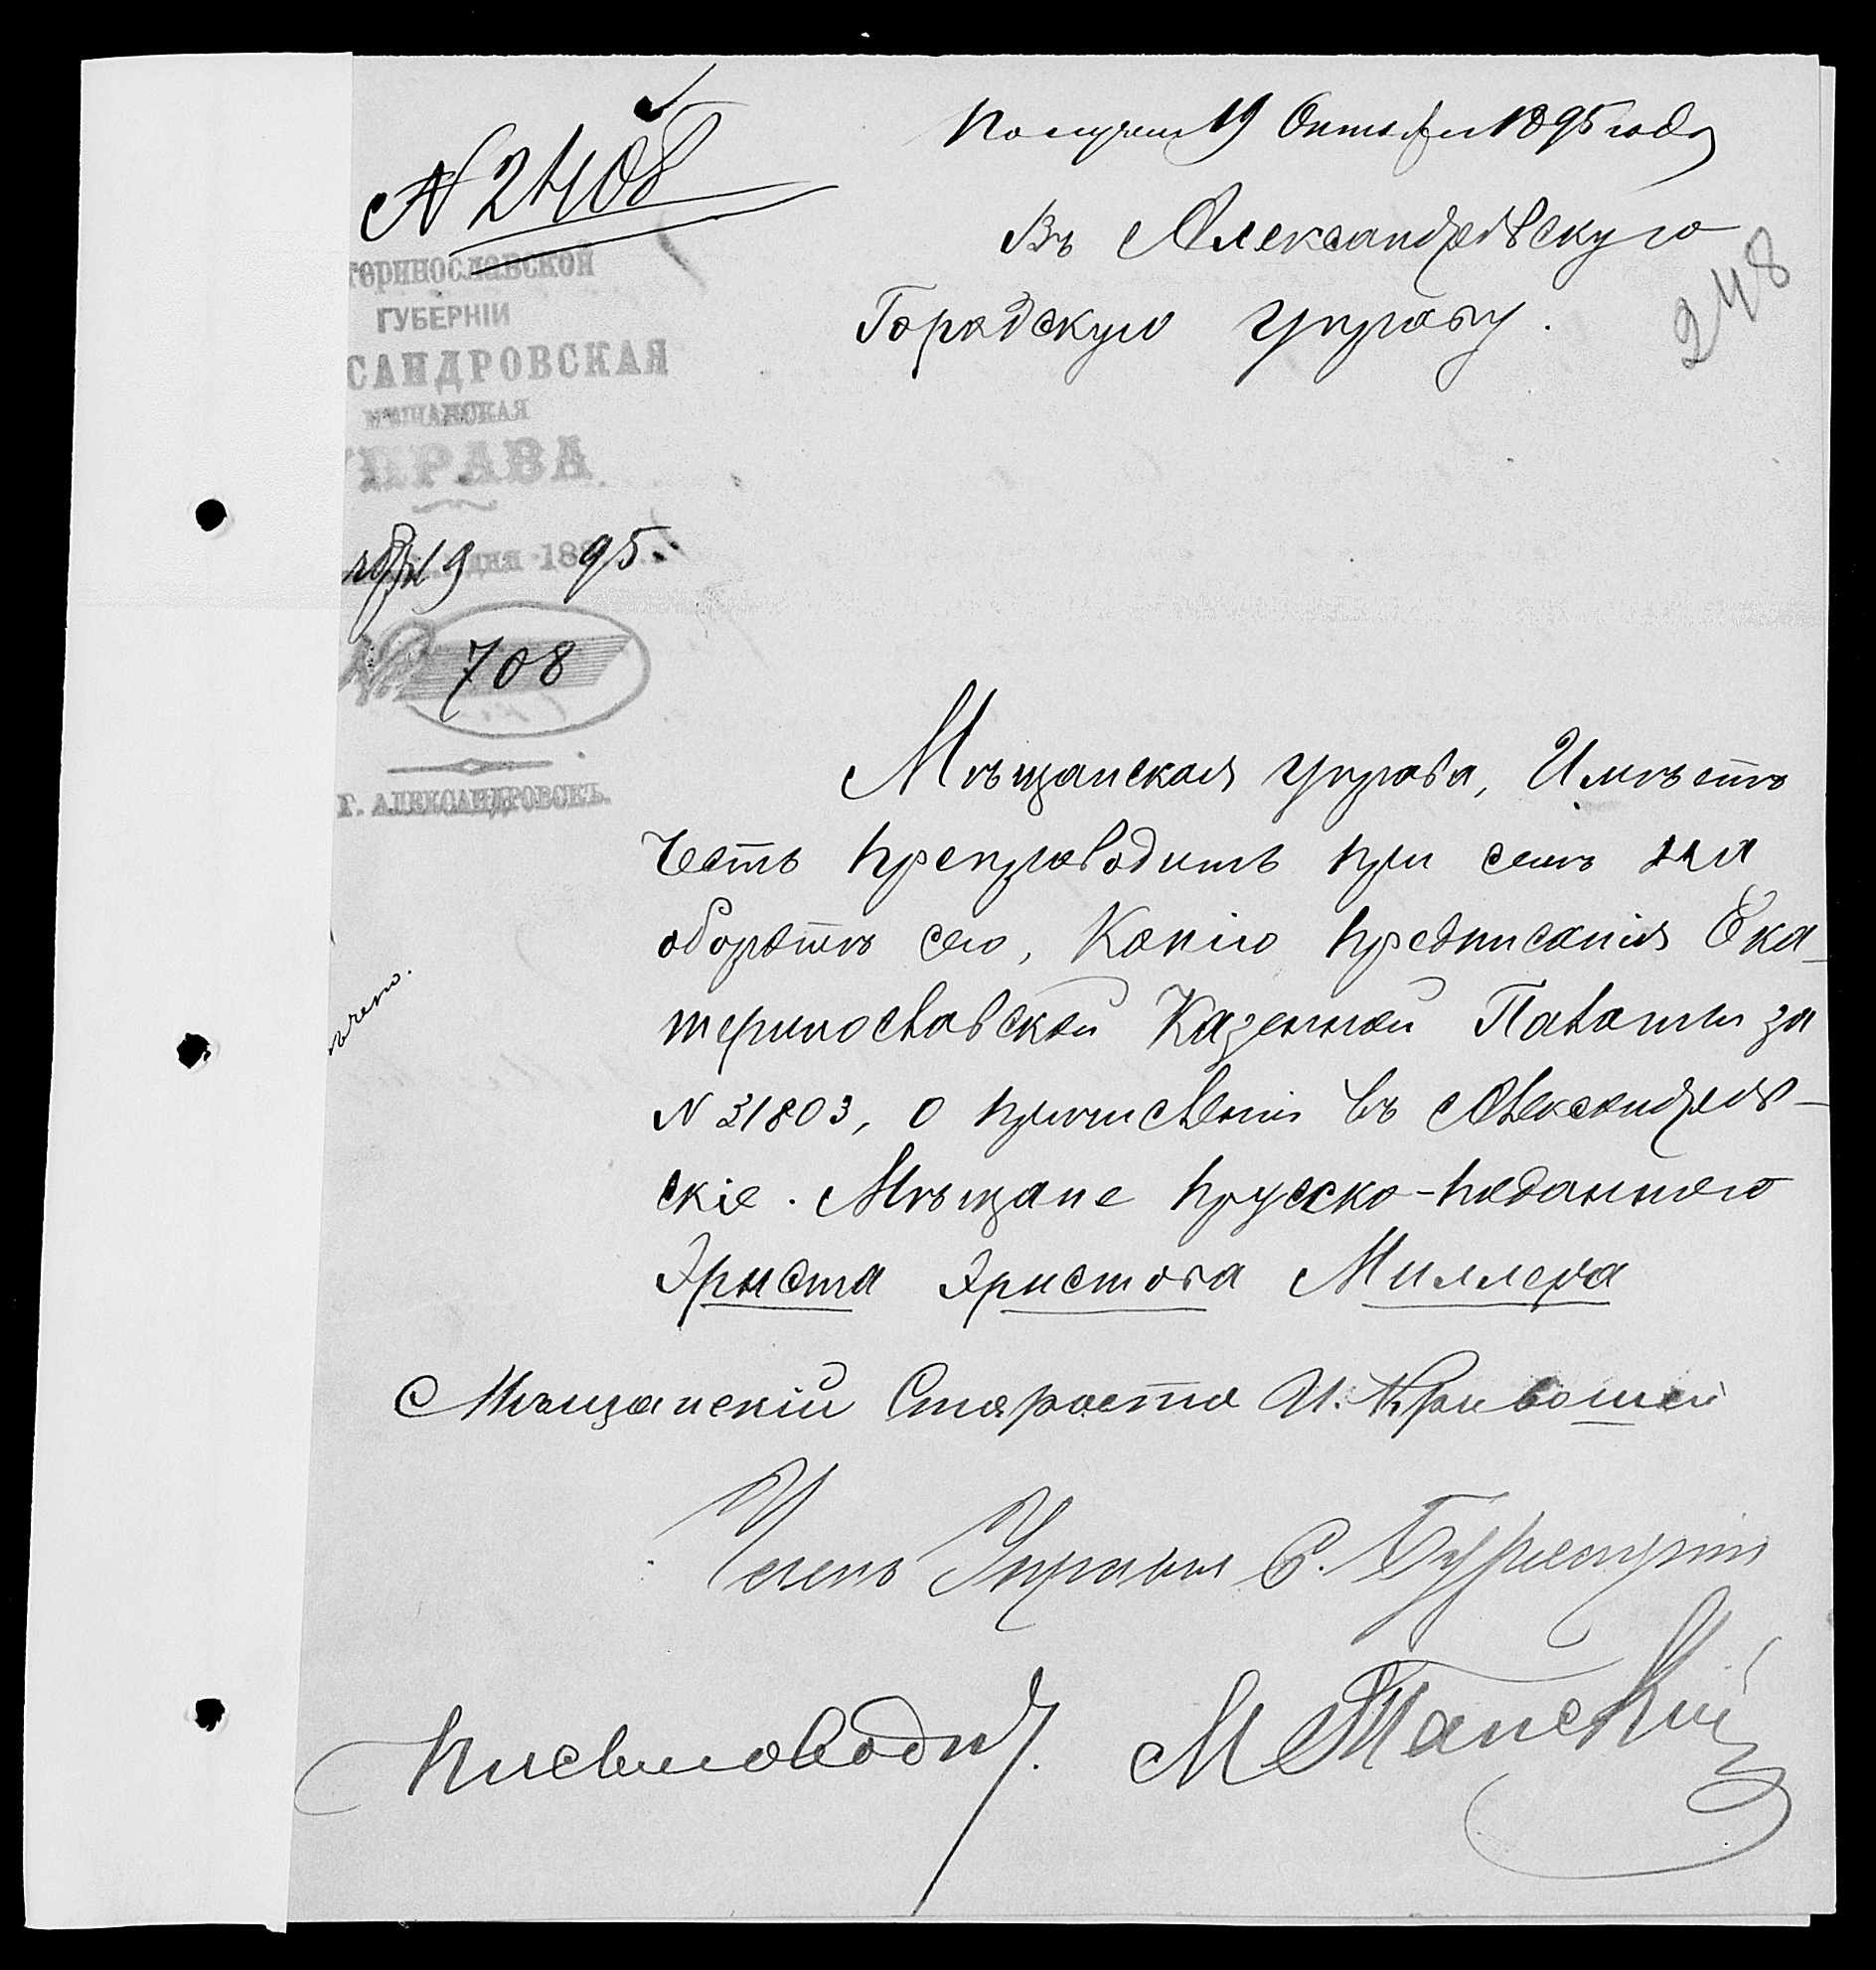 N 2408
Получен 19 Октября 1895 года
Въ Александровскую
Городскую Управу.
248
теринославской
ГУБЕРНІИ
САНДРОВСКАЯ
МѢЩАНСКАЯ
УПРАВА.
дня 188 95
№ 708
Г. АЛЕКСАНДРОВСКЪ.
Мѣщанская Управа, Имѣетъ
Честь препроводить при семъ на
оборотѣ сего, Копію предписанія Ека-
теринославской Казенной Палаты за
N 31803, о причисленіи въ Александров-
скіе. Мѣщане прусско-подданного
Эрнста Эрнстова Миллера
Мѣщанскій Староста И. Кривошей
Членъ Управы
Письмоводит. М